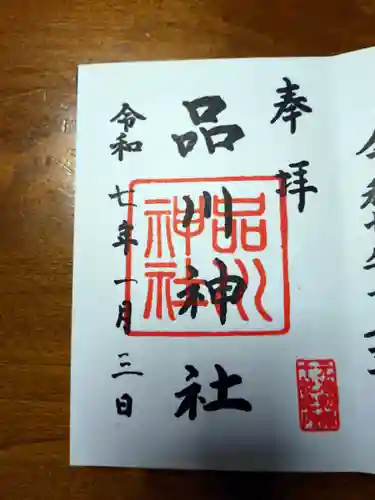 奉拝
品川神社
品川神社
令和七年一月三日